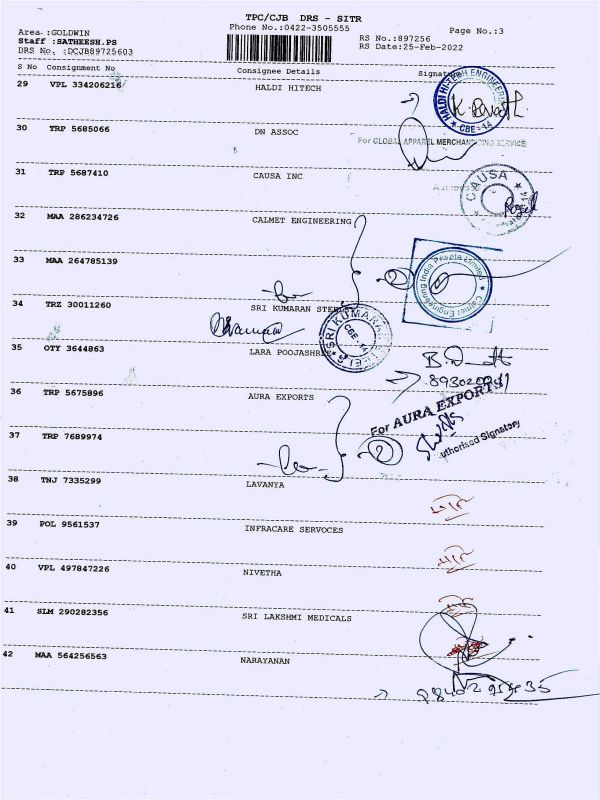 TPC/CJB DRS - SITR
Phone No.:0422-3505555
Area :GOLDWIN
Page No.:3
Staff :SATHEESH.PS
RS No.:897256
DRS No. :DCJB89725603
RS Date:25-Feb-2022
S No Consignment No Consignee Details Signature
29 VPL 334206216 HALDI HITECH
HALDI HITECH ENGINEERING
* CBE-14 *
30 TRP 5685066 DN ASSOC
For GLOBAL APPAREL MERCHANDISING SERVICE
31 TRP 5687410 CAUSA INC
CAUSA
32 MAA 286234726 CALMET ENGINEERING
33 MAA 264785139
Calmet Engineering India Private Limited
34 TRZ 30011260 SRI KUMARAN STEELS
SRI KUMARAN STEELS
CBE-14
35 OTY 3644863 LARA POOJASHREE
36 TRP 5675896 AURA EXPORTS
For AURA EXPORTS
Authorised Signatory
37 TRP 7689974
38 TNJ 7335299 LAVANYA
39 POL 9561537 INFRACARE SERVOCES
40 VPL 497847226 NIVETHA
41 SLM 290282356 SRI LAKSHMI MEDICALS
42 MAA 564256563 NARAYANAN